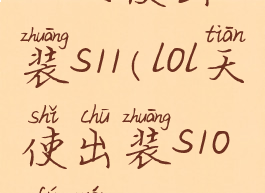 zhuāng tiān
装S11(lol天
shǐ chū zhuāng
使出装S10